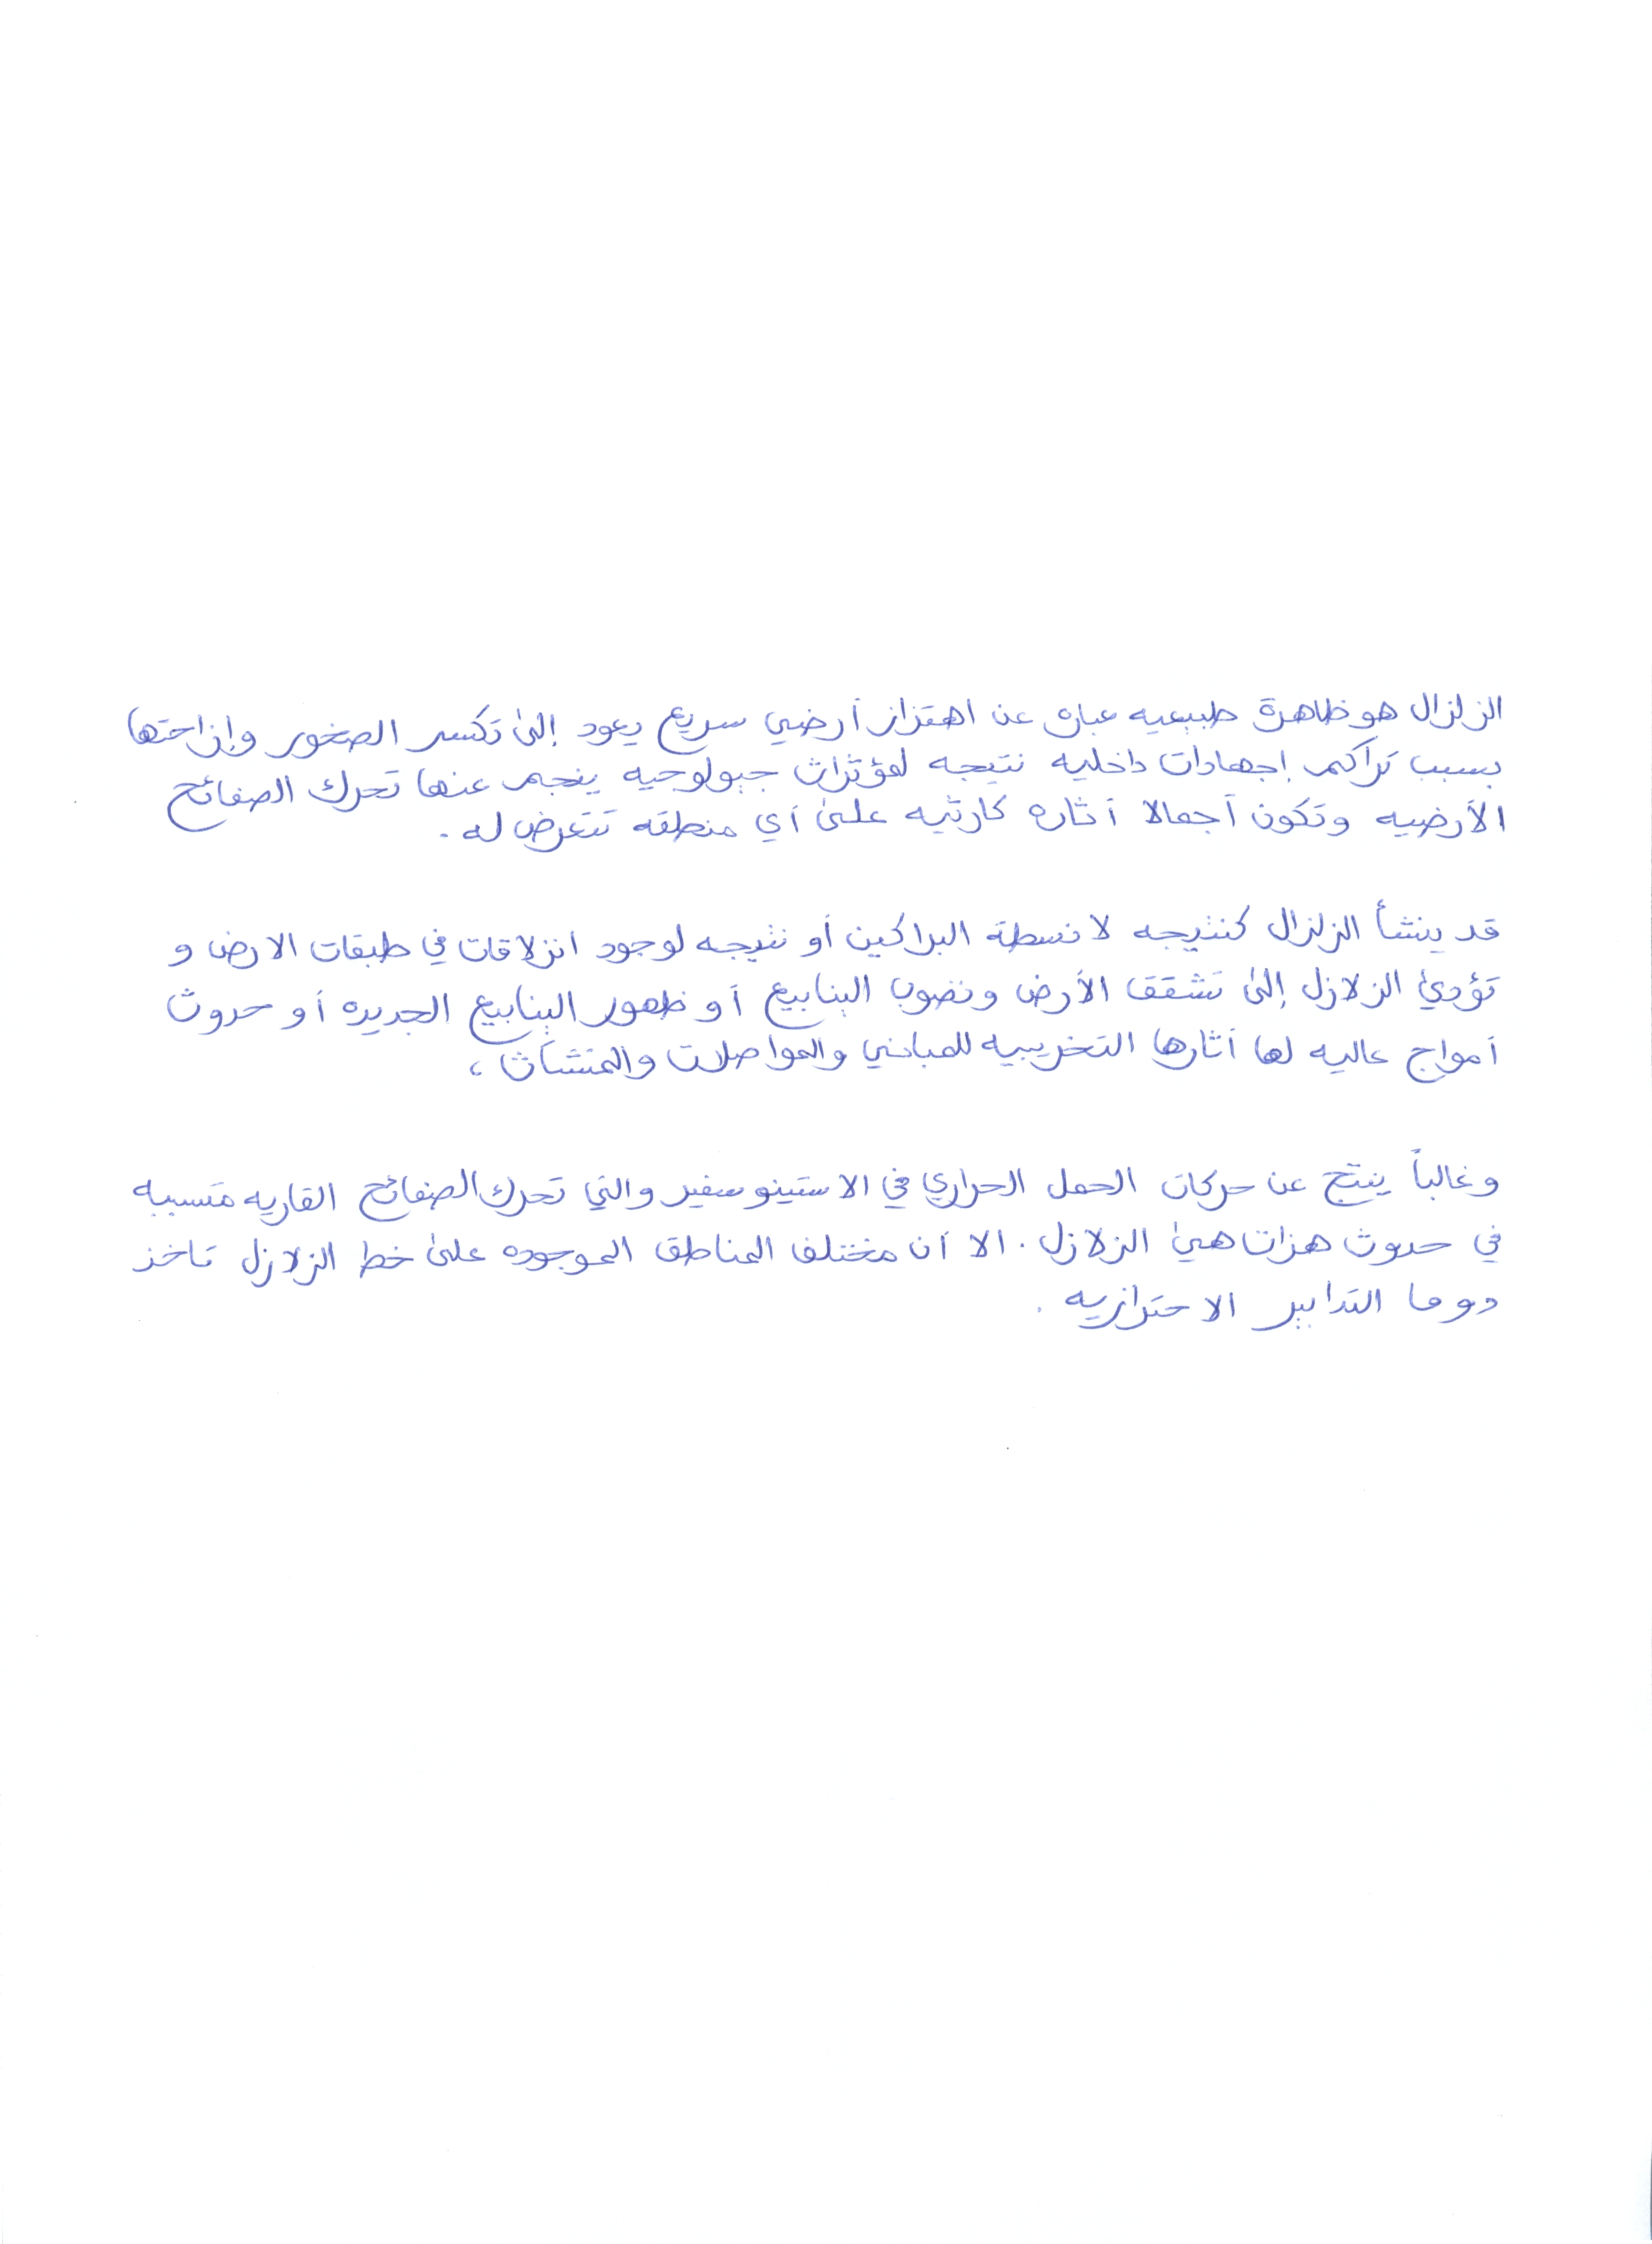 الزلزال هو ظاهرة طبيعيه عباره عن اهتزاز أرضي سريع يعود إلى تكسر الصخور وإزاحتها
بسبب تراكم إجهادات داخليه نتيجه لمؤثرات جيولوجيه ينجم عنها تحرك الصفائح
الأرضيه وتكون أجمالا أثاره كارثيه على أي منطقه تتعرض له .
قد ينشأ الزلزال كنتيجه لانسطة البراكين أو نتيجه لوجود انزلاقات في طبقات الارض و
تؤدي الزلازل إلى تشقق الأرض ونضوب الينابيع أو ظهور الينابيع الجديده أو حدوث
أمواج عاليه لها أثارها التخريبيه للمباني والمواصلات والمنشآت ،
وغالباً ينتج عن حركات الحمل الحراري في الاستينوسفير والتي تحرك الصفائح القاريه متسببه
في حدوث هزات هي الزلازل . الا أن مختلف المناطق الموجوده على خط الزلازل تاخذ
دوما التدابير الاحترازيه .